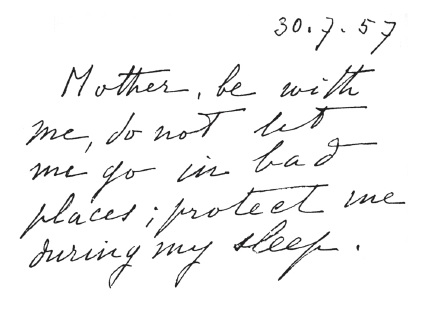 30.7.57
Mother, be with
me, do not let
me go in bad
places; protect me
during my sleep.